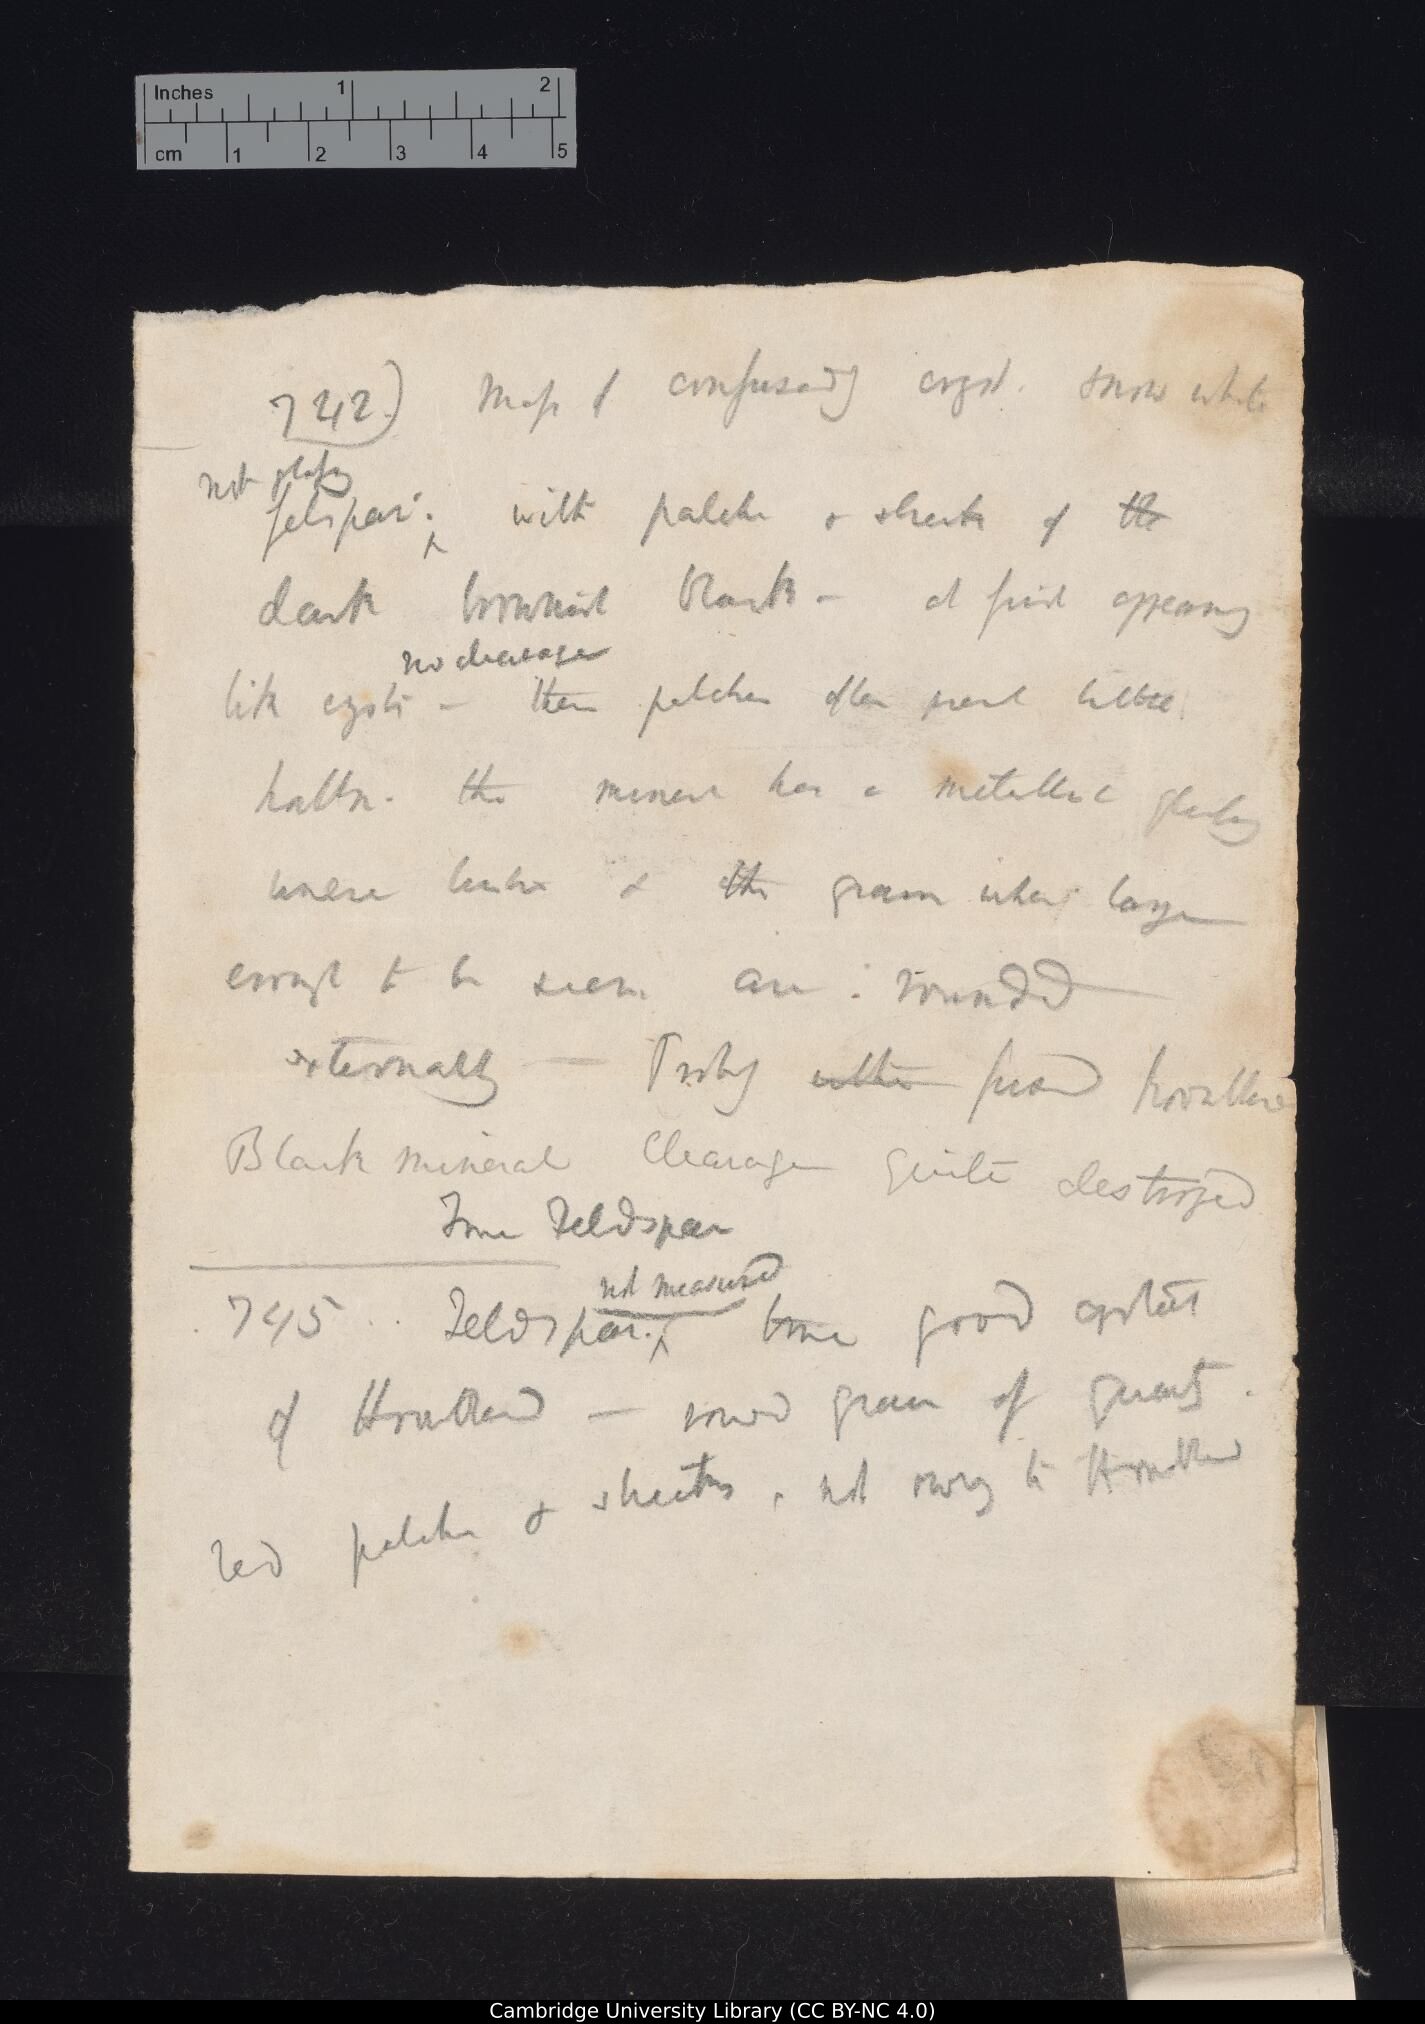 Inches 1 2
cm 1 2 3 4 5
742) Mass of confusedly cryst. snow white
not glassy
felspar; with patches & streaks of the
dark brownish black — at first appearing
no cleavage
like crysts — these patches often send little
the mineral has a metallic glassy
lustre & the grains when large
enough to be seen are rounded
externally — Truly fused hornblende
Black mineral Cleavage quite destroyed
True Feldspar
not measured
745 Feldspar. some good crystals
of Hornblende — round grains of quartz.
red patches & streaks, not owing to Hornblende
Cambridge University Library (CC BY-NC 4.0)